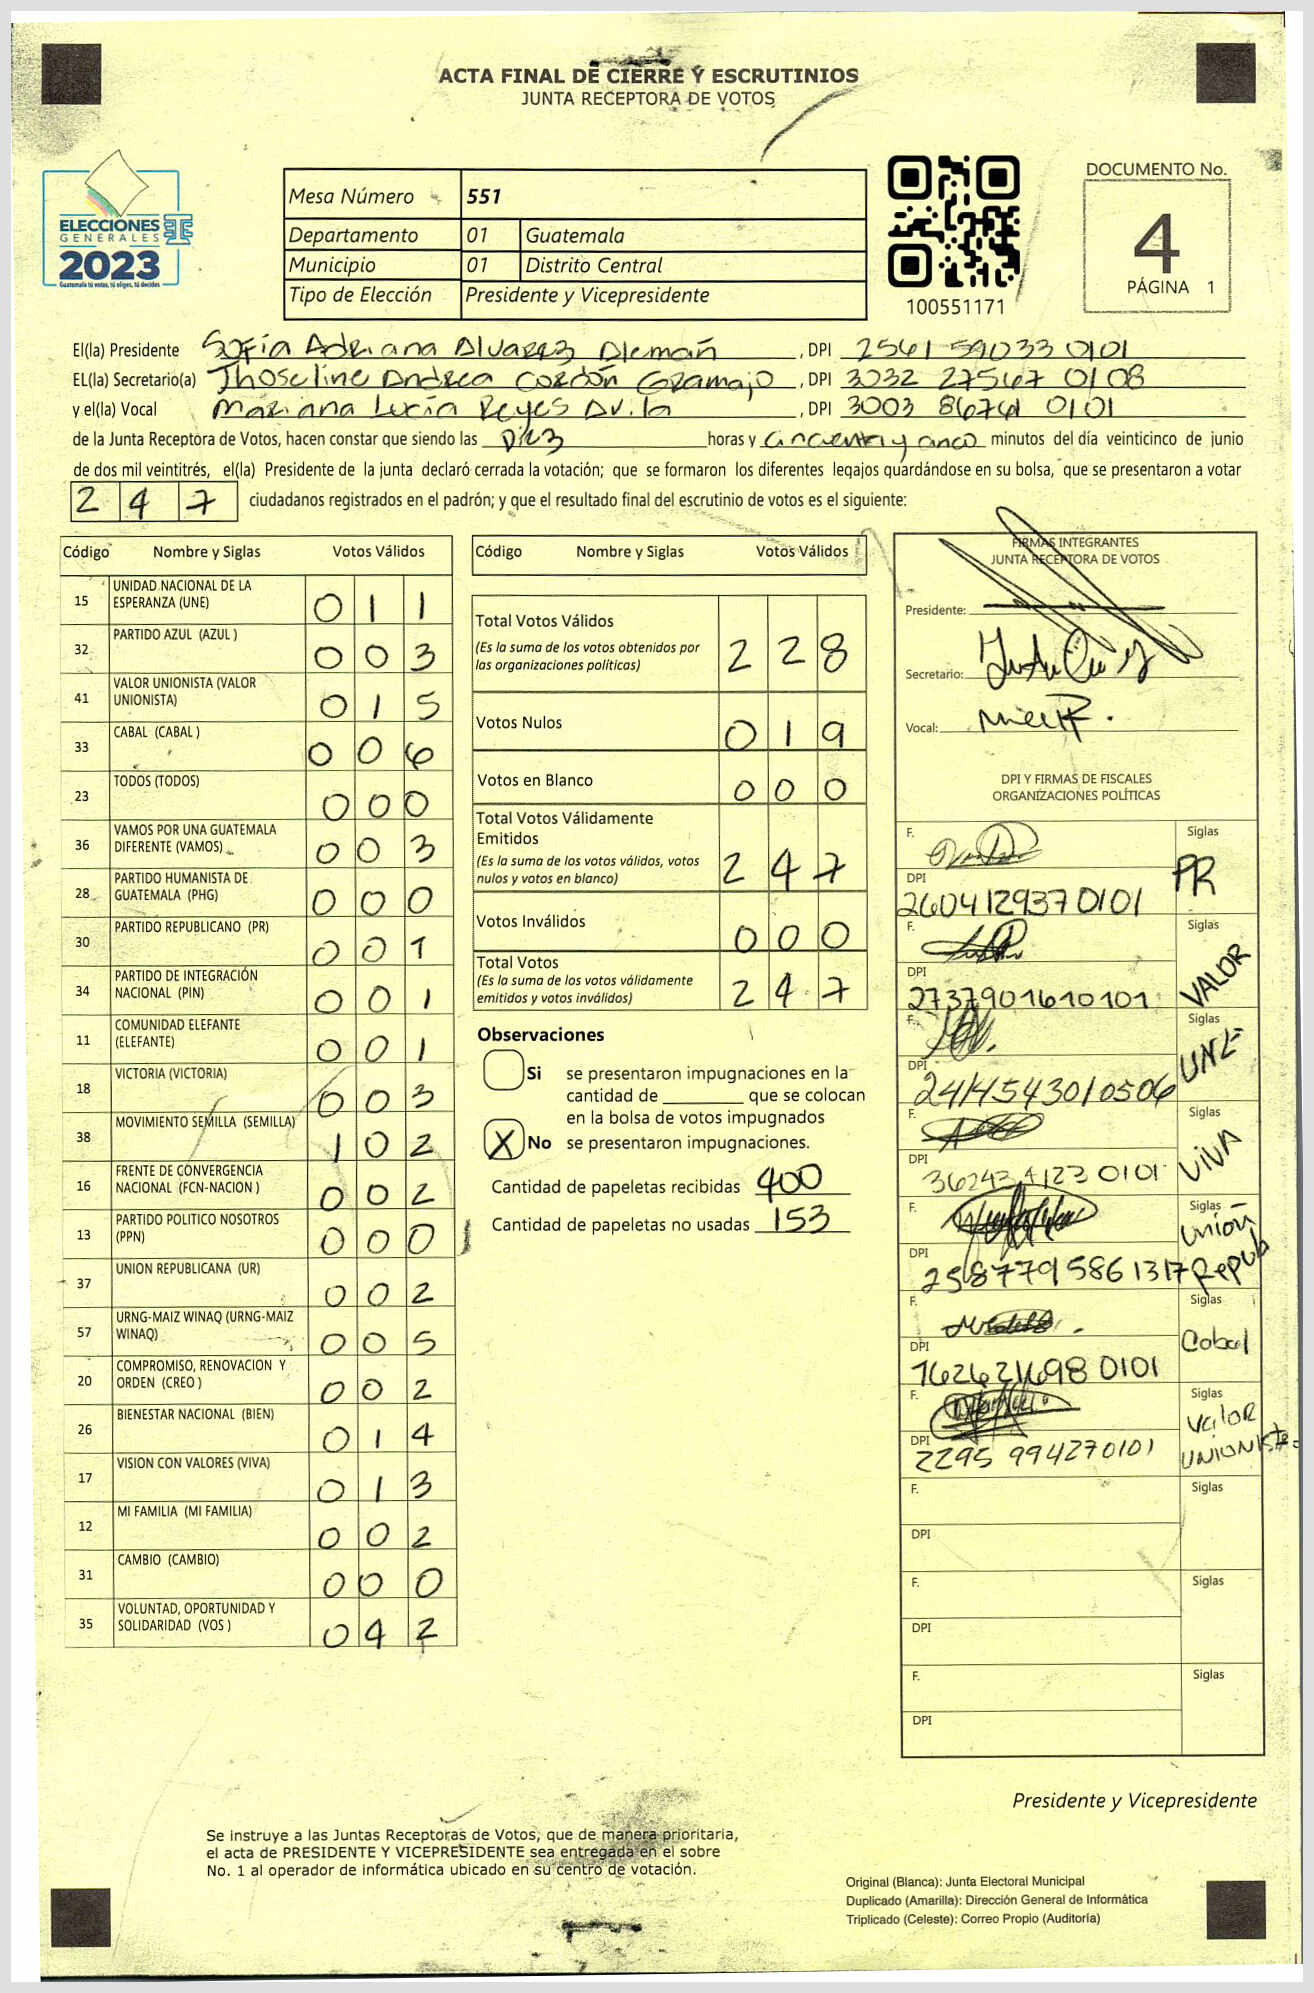 ACTA FINAL DE CIERRE Y ESCRUTINIOS
JUNTA RECEPTORA DE VOTOS
ELECCIONES
GENERALES
2023
Guatemala tú votas, tú eliges, tú decides
Mesa Número 551
Departamento 01 Guatemala
Municipio 01 Distrito Central
Tipo de Elección Presidente y Vicepresidente
100551171
DOCUMENTO No.
4
PÁGINA 1
El(la) Presidente Sofía Adriana Alvarez Alemañ, DPI 2561 59033 0101
EL(la) Secretario(a) Jhoseline Andrea Cordón Gramajo, DPI 3032 27567 0108
y el(la) Vocal Mariana Lucía Reyes Avila, DPI 3003 86761 0101
de la Junta Receptora de Votos, hacen constar que siendo las Diez horas y cincuenta y cinco minutos del día veinticinco de junio
de dos mil veintitrés, el(la) Presidente de la junta declaró cerrada la votación; que se formaron los diferentes legajos guardándose en su bolsa, que se presentaron a votar
247 ciudadanos registrados en el padrón; y que el resultado final del escrutinio de votos es el siguiente:
Código Nombre y Siglas Votos Válidos
15 UNIDAD NACIONAL DE LA ESPERANZA (UNE) 011
32 PARTIDO AZUL (AZUL ) 003
41 VALOR UNIONISTA (VALOR UNIONISTA) 015
33 CABAL (CABAL ) 006
23 TODOS (TODOS) 000
36 VAMOS POR UNA GUATEMALA DIFERENTE (VAMOS) 003
28 PARTIDO HUMANISTA DE GUATEMALA (PHG) 000
30 PARTIDO REPUBLICANO (PR) 001
34 PARTIDO DE INTEGRACIÓN NACIONAL (PIN) 001
11 COMUNIDAD ELEFANTE (ELEFANTE) 001
18 VICTORIA (VICTORIA) 003
38 MOVIMIENTO SEMILLA (SEMILLA) 102
16 FRENTE DE CONVERGENCIA NACIONAL (FCN-NACION ) 002
13 PARTIDO POLITICO NOSOTROS (PPN) 000
37 UNION REPUBLICANA (UR) 002
57 URNG-MAIZ WINAQ (URNG-MAIZ WINAQ) 005
20 COMPROMISO, RENOVACION Y ORDEN (CREO ) 002
26 BIENESTAR NACIONAL (BIEN) 014
17 VISION CON VALORES (VIVA) 013
12 MI FAMILIA (MI FAMILIA) 002
31 CAMBIO (CAMBIO) 000
35 VOLUNTAD, OPORTUNIDAD Y SOLIDARIDAD (VOS ) 042
Código Nombre y Siglas Votos Válidos
Total Votos Válidos 228
(Es la suma de los votos obtenidos por
las organizaciones políticas)
Votos Nulos 019
Votos en Blanco 000
Total Votos Válidamente
Emitidos 247
(Es la suma de los votos válidos, votos
nulos y votos en blanco)
Votos Inválidos 000
Total Votos 247
(Es la suma de los votos válidamente
emitidos y votos inválidos)
Observaciones
Si se presentaron impugnaciones en la
cantidad de ________ que se colocan
en la bolsa de votos impugnados
X No se presentaron impugnaciones.
Cantidad de papeletas recibidas 400
Cantidad de papeletas no usadas 153
FIRMAS INTEGRANTES
JUNTA RECEPTORA DE VOTOS
Presidente:
Secretario:
Vocal:
DPI Y FIRMAS DE FISCALES
ORGANIZACIONES POLÍTICAS
F. Siglas PR
DPI 2604129370101
F. Siglas VALOR
DPI 2737901610101
F. Siglas UNE
DPI 2414543010506
F. Siglas VIVA
DPI 3624341230101
F. Siglas Unión Repub
DPI 2587795861317
F. Siglas Cabal
DPI 1626216980101
F. Siglas Valor UNIONISTA
DPI 2295 994270101
F. Siglas
DPI
F. Siglas
DPI
F. Siglas
DPI
Presidente y Vicepresidente
Se instruye a las Juntas Receptoras de Votos, que de manera prioritaria,
el acta de PRESIDENTE Y VICEPRESIDENTE sea entregada en el sobre
No. 1 al operador de informática ubicado en su centro de votación.
Original (Blanca): Junta Electoral Municipal
Duplicado (Amarilla): Dirección General de Informática
Triplicado (Celeste): Correo Propio (Auditoría)